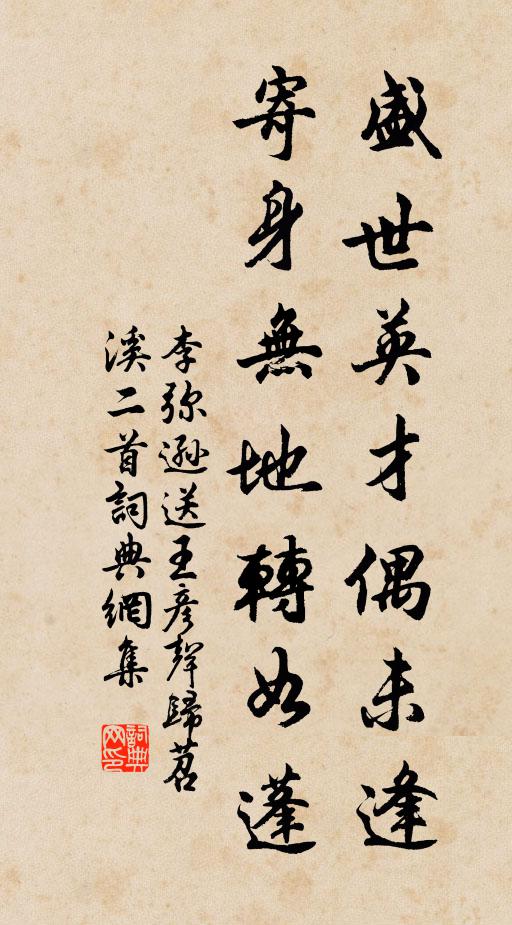 盛世英才偶未逢
寄身無地轉如蓬
李弥遜送王彦聲歸苕
溪二首詞典網集
詞典
网印